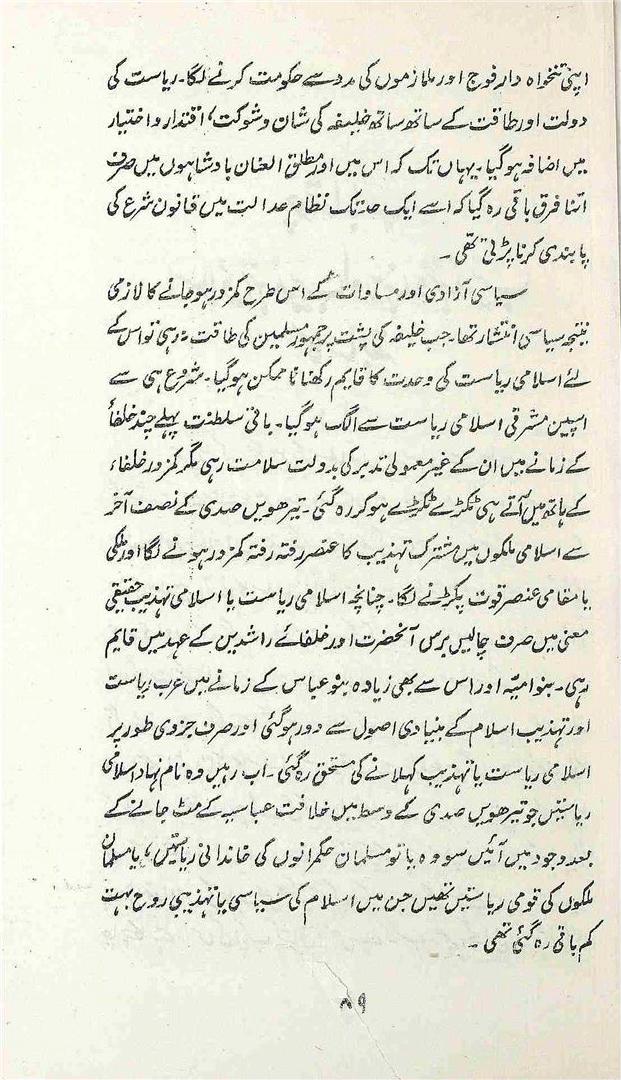 اپنی تنخواہ دار فوج اور ملازموں کی مدد سے حکومت کرنے لگا۔ ریاست کی
دولت اور طاقت کے ساتھ ساتھ خلیفہ کی شان و شوکت، اقتدار و اختیار
میں اضافہ ہو گیا۔ یہاں تک کہ اس میں اور مطلق العنان بادشاہوں میں صرف
اتنا فرق باقی رہ گیا کہ اسے ایک حد تک نظام عدالت میں قانون شرع کی
پابندی کرنا پڑتی تھی۔
سیاسی آزادی اور مساوات کے اس طرح کمزور ہو جانے کا لازمی
نتیجہ سیاسی انتشار تھا۔ جب خلیفہ کی پشت پر جمہور مسلمین کی طاقت نہ رہی تو اس کے
لئے اسلامی ریاست کی وحدت کا قایم رکھنا نا ممکن ہو گیا۔ شروع ہی سے
اسپین مشرقی اسلامی ریاست سے الگ ہو گیا۔ باقی سلطنت پہلے چند خلفأ
کے زمانے میں ان کے غیر معمولی تدبر کی بدولت سلامت رہی مگر کمزور خلفاء
کے ہاتھ میں آتے ہی ٹکڑے ٹکڑے ہو کر رہ گئی۔ تیرھویں صدی کے نصف آخر
سے اسلامی ملکوں میں مشترک تہذیب کا عنصر رفتہ رفتہ کمزور ہونے لگا اور ملکی
یا مقامی عنصر قوت پکڑنے لگا۔ چنانچہ اسلامی ریاست یا اسلامی تہذیب حقیقی
معنی میں صرف چالیس برس آنحضرت اور خلفائے راشدین کے عہد میں قایم
رہی۔ بنو امیّہ اور اس سے بھی زیادہ بنو عباس کے زمانے میں عرب ریاست
اور تہذیب اسلام کے بنیادی اصول سے دور ہو گئی اور صرف جزوی طور پر
اسلامی ریاست یا تہذیب کہلانے کی مستحق رہ گئی۔ اب رہیں وہ نام نہاد اسلامی
ریاستیں جو تیرھویں صدی کے وسط میں خلافت عباسیہ کے مٹ جانے کے
بعد وجود میں آئیں سو وہ یا تو مسلمان حکمرانوں کی خاندانی ریاستیں، یا مسلمان
ملکوں کی قومی ریاستیں تھیں جن میں اسلام کی سیاسی یا تہذیبی روح بہت
کم باقی رہ گئی تھی۔
۸۹